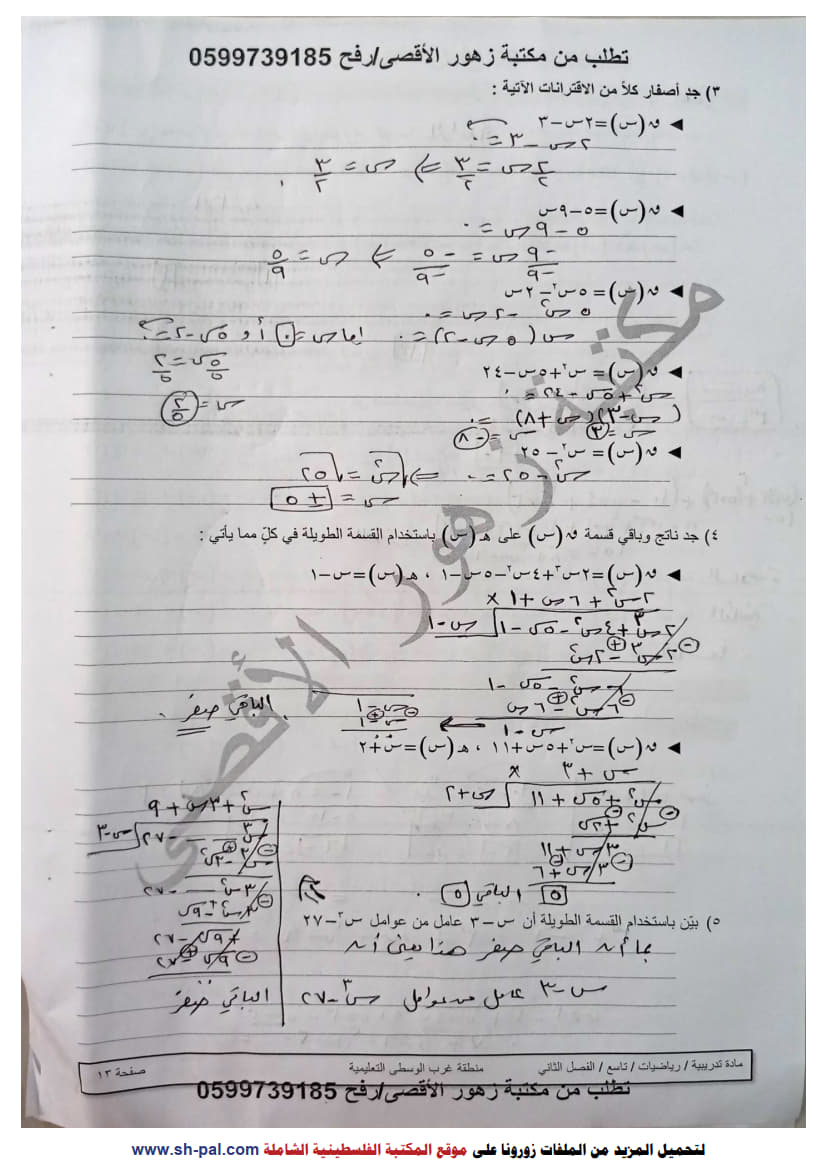 تطلب من مكتبة زهور الأقصى/رفح 0599739185
٣) جد أصفار كلاً من الاقترانات الآتية :
◄ ق(س)=٢س-٣
٢س-٣=٠
٢س/٢ = ٣/٢ ⇐ س = ٣/٢
◄ ق(س)=٥-٩س
٥-٩س=٠
-٩س/-٩ = -٥/-٩ ⇐ س = ٥/٩
◄ ق(س)=٥س²-٢س
٥س²-٢س=٠
س(٥س-٢)=٠ إما س=٠ أو ٥س-٢=٠
٥س/٥ = ٢/٥
س = ٢/٥
◄ ق(س)= س²+٥س-٢٤
س²+٥س-٢٤=٠
(س-٣)(س+٨)=٠
س=٣ س=-٨
◄ ق(س)= س²-٢٥
س²-٢٥=٠ ⇐ √س² = √٢٥
س = ±٥
٤) جد ناتج وباقي قسمة ق(س) على هـ(س) باستخدام القسمة الطويلة في كلٍ مما يأتي :
◄ ق(س)=٢س³+٤س²-٥س-١ ، هـ(س)=س-١
٢س²+٦س+١
س-١ ٢س³+٤س²-٥س-١
٢س³-٢س²
٦س²-٥س-١
٦س²-٦س
س-١
س-١
س-١
الباقي صفر .
◄ ق(س)=س²+٥س+١١ ، هـ(س)=س+٢
س+٣
س+٢ س²+٥س+١١
س²+٢س
٣س+١١
٣س+٦
٥ الباقي ٥ .
٥) بيّن باستخدام القسمة الطويلة أن س-٣ عامل من عوامل س³-٢٧
س²+٣س+٩
س-٣ س³-٢٧
س³-٣س²
٣س²-٢٧
٣س²-٩س
+٩س-٢٧
٩س-٢٧
الباقي صفر
بما أن الباقي صفر هذا يعني أنه
س-٣ عامل من عوامل س³-٢٧
مادة تدريبية / رياضيات / تاسع / الفصل الثاني منطقة غرب الوسطى التعليمية صفحة ١٣
تطلب من مكتبة زهور الأقصى/رفح 0599739185
مكتبة زهور الأقصى
لتحميل المزيد من الملفات زورونا على موقع المكتبة الفلسطينية الشاملة www.sh-pal.com